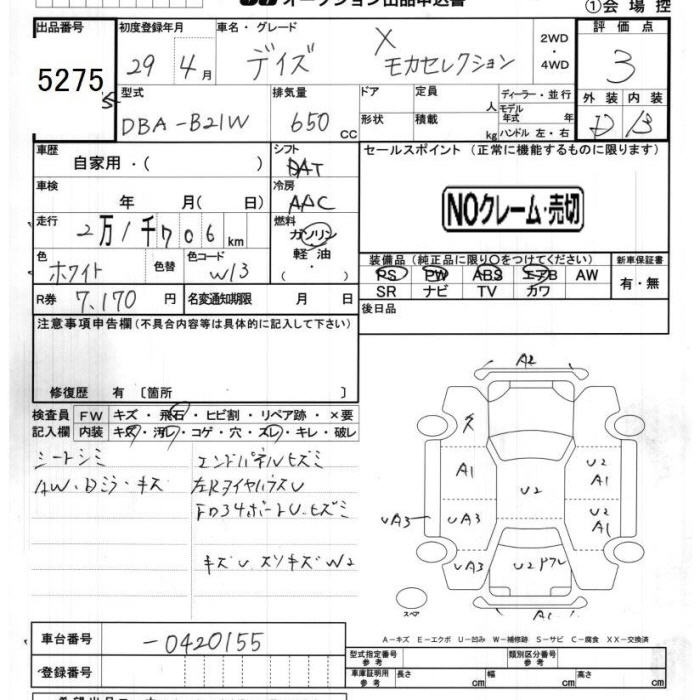 オークション出品申込書
①会場控
出品番号 初度登録年月 車名・グレード 2WD・4WD 評価点
5275 29年4月 デイズ X モカセレクション 3
型式 排気量 ドア 定員 人 ディーラー・並行 外装 内装
DBA-B21W 650 CC 形状 積載 kg モデル年式 年 ハンドル 左・右 D B
車歴 自家用・( ) シフト DAT
セールスポイント (正常に機能するものに限ります)
車検 年 月( 日) 冷房 AAC
NOクレーム・売切
走行 2万1千706km 燃料 ガソリン 軽油・( )
色 ホワイト 色替 色コード W13
装備品 (純正品に限り○をつけてください) 新車保証書
PS PW ABS エアB AW 有・無
SR ナビ TV カワ
R券 7,170円 名変通知期限 月 日
後日品
注意事項申告欄 (不具合内容等は具体的に記入して下さい)
修復歴 有 〔箇所 〕
検査員 FW キズ・飛石・ヒビ割・リペア跡・×要
記入欄 内装 キズ・汚レ・コゲ・穴・スレ・キレ・破レ
シートシミ エンドパネルヒズミ
AW・Dミラ・キズ 左RタイヤハウスU
ヒズミ
キズU スソキズW2
A2
A1 U2
A1
UA3 UA3 U2 U2
A1
UA3 U2 A1
A1
スペア
A-キズ E-エクボ U-凹み W-補修跡 S-サビ C-腐食 XX-交換済
車台番号 -0420155
型式指定番号 参考 類別区分番号 参考
登録番号 車庫証明用 参考 長さ cm 幅 cm 高さ cm